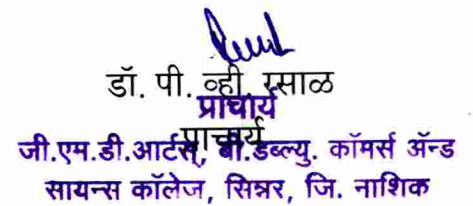 डॉ. पी. व्ही. रसाळ
प्राचार्य
प्राचार्य
जी.एम.डी.आर्टस्, बी.डब्ल्यु. कॉमर्स ॲन्ड
सायन्स कॉलेज, सिन्नर, जि. नाशिक